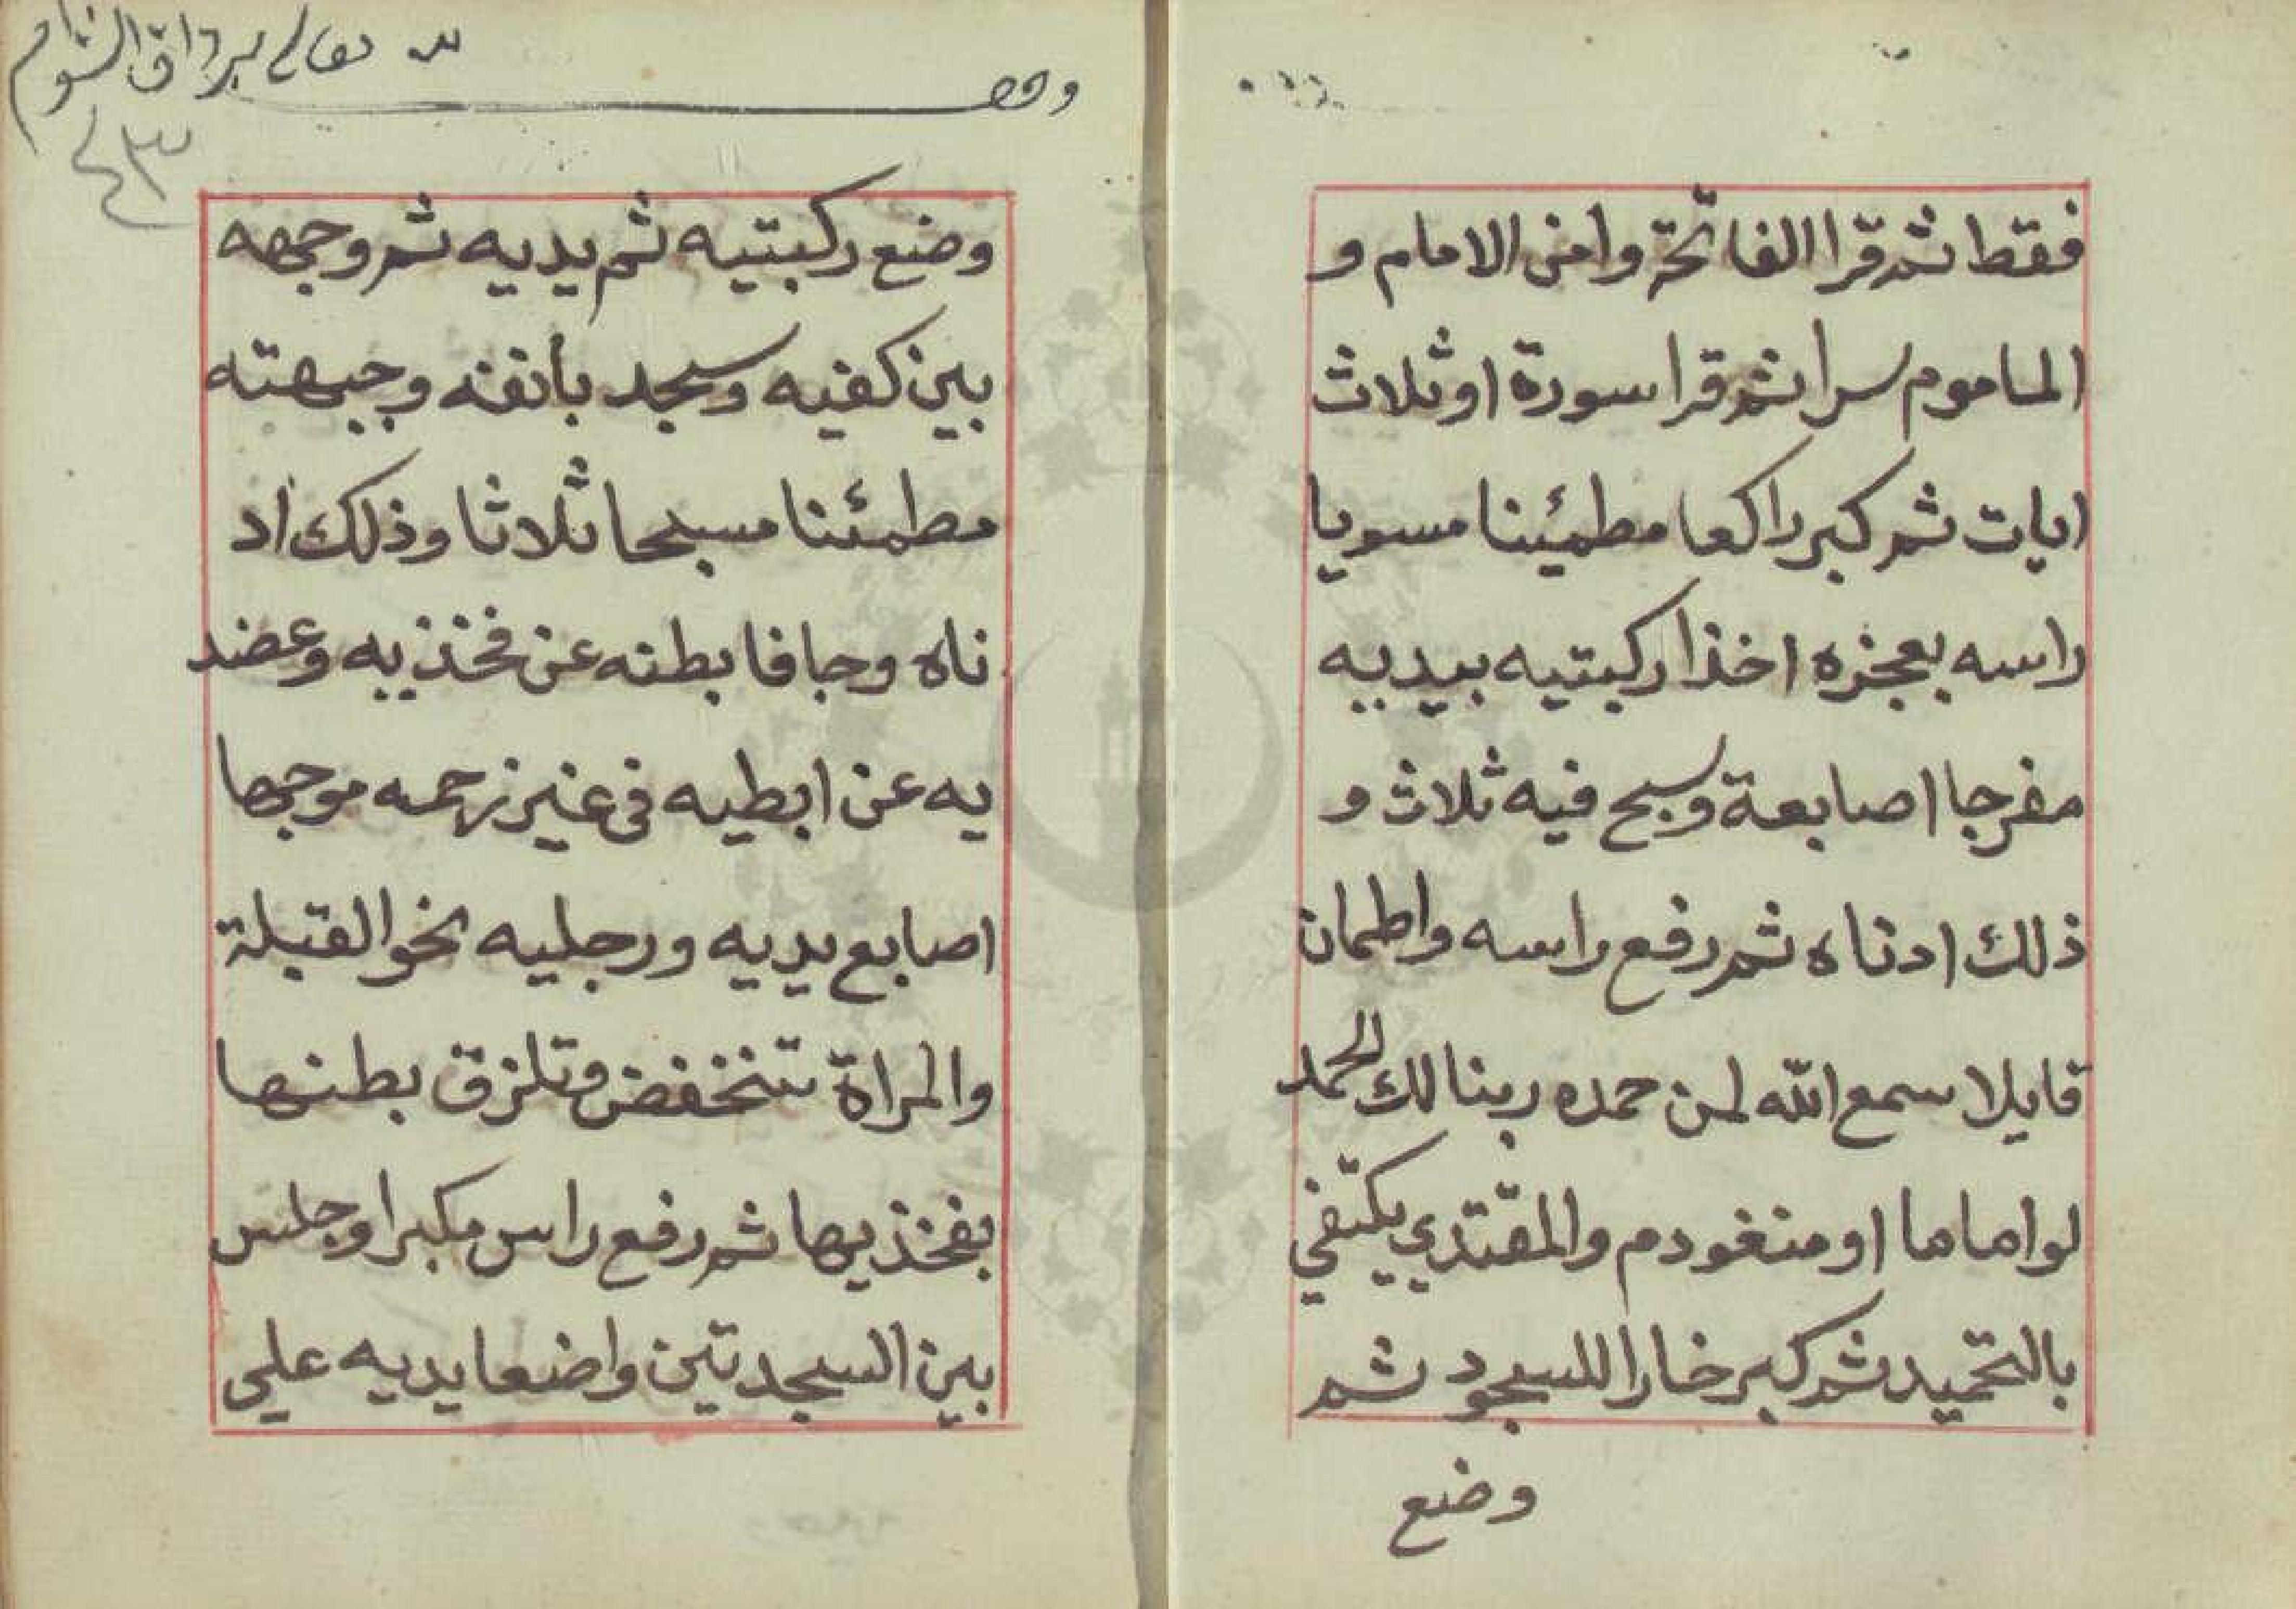 فقط ثم قرا الفاتحة وامن الامام و
الماموم سرا ثم قرا سورة او ثلاث
ايات ثم كبر راكعا مطمئينا مسويا
راسه بعجزه اخذا ركبتيه بيديه
مفرجا اصابعة وسبح فيه ثلاث و
ذلك ادناه ثم رفع راسه واطمان
قايلا سمع الله لمن حمده ربنا لك الحمد
لو اماما او منغودم والمقتدي يكتفي
بالتحميد ثم كبر خارا للسجود ثم
وضع
وقف لله تعالى برواق الشوام
٤٣
وضع ركبتيه ثم يديه ثم وجهه
بين كفيه وسجد بانفه وجبهته
مطمئنا مسبحا ثلاثا وذلك اد
ناه وجافا بطنه عن فخذيه وعضد
يه عن ابطيه فى غير زحمه موجها
اصابع يديه ورجليه نحو القبلة
والمراة تنخفض وتلزق بطنها
بفخذيها ثم رفع راس مكبرا وجلس
بين السجدتين واضعا يديه على